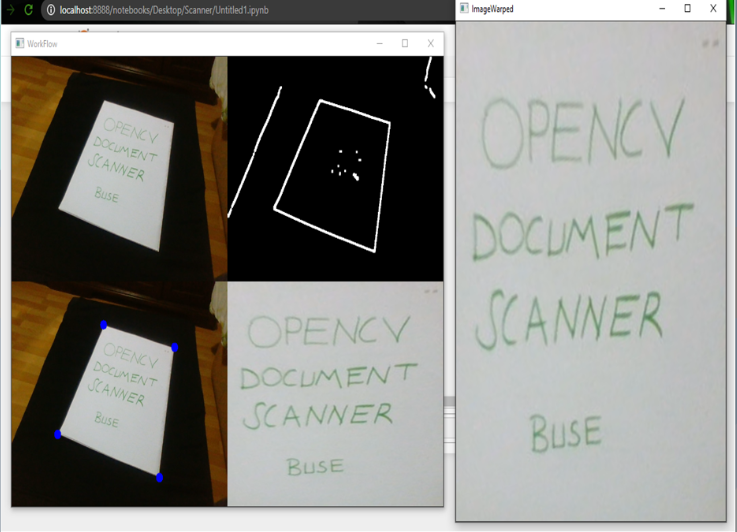 localhost:8888/notebooks/Desktop/Scanner/Untitled1.ipynb
WorkFlow
OPENCV
DOCUMENT
SCANNER
BUSE
OPENCV
DOCUMENT
SCANNER
BUSE
OPENCV
DOCUMENT
SCANNER
BUSE
ImageWarped
OPENCV
DOCUMENT
SCANNER
BUSE